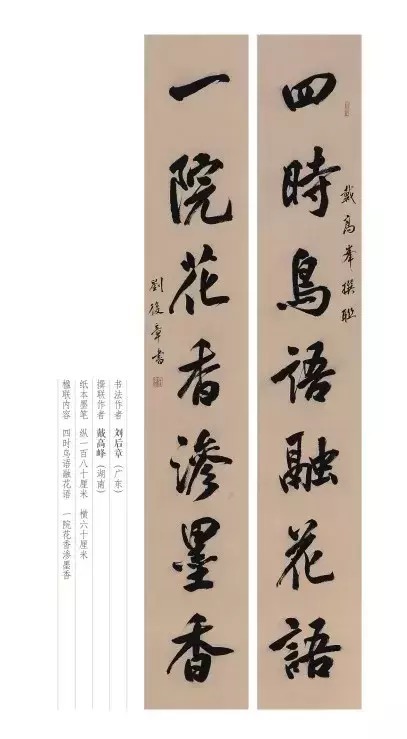 四時鳥語融花語
戴高峯撰聯
一院花香滲墨香
劉後章書
书法作者 刘后章（广东）
撰联作者 戴高峰（湖南）
纸本墨笔 纵一百八十厘米 横六十厘米
楹联内容 四时鸟语融花语 一院花香渗墨香